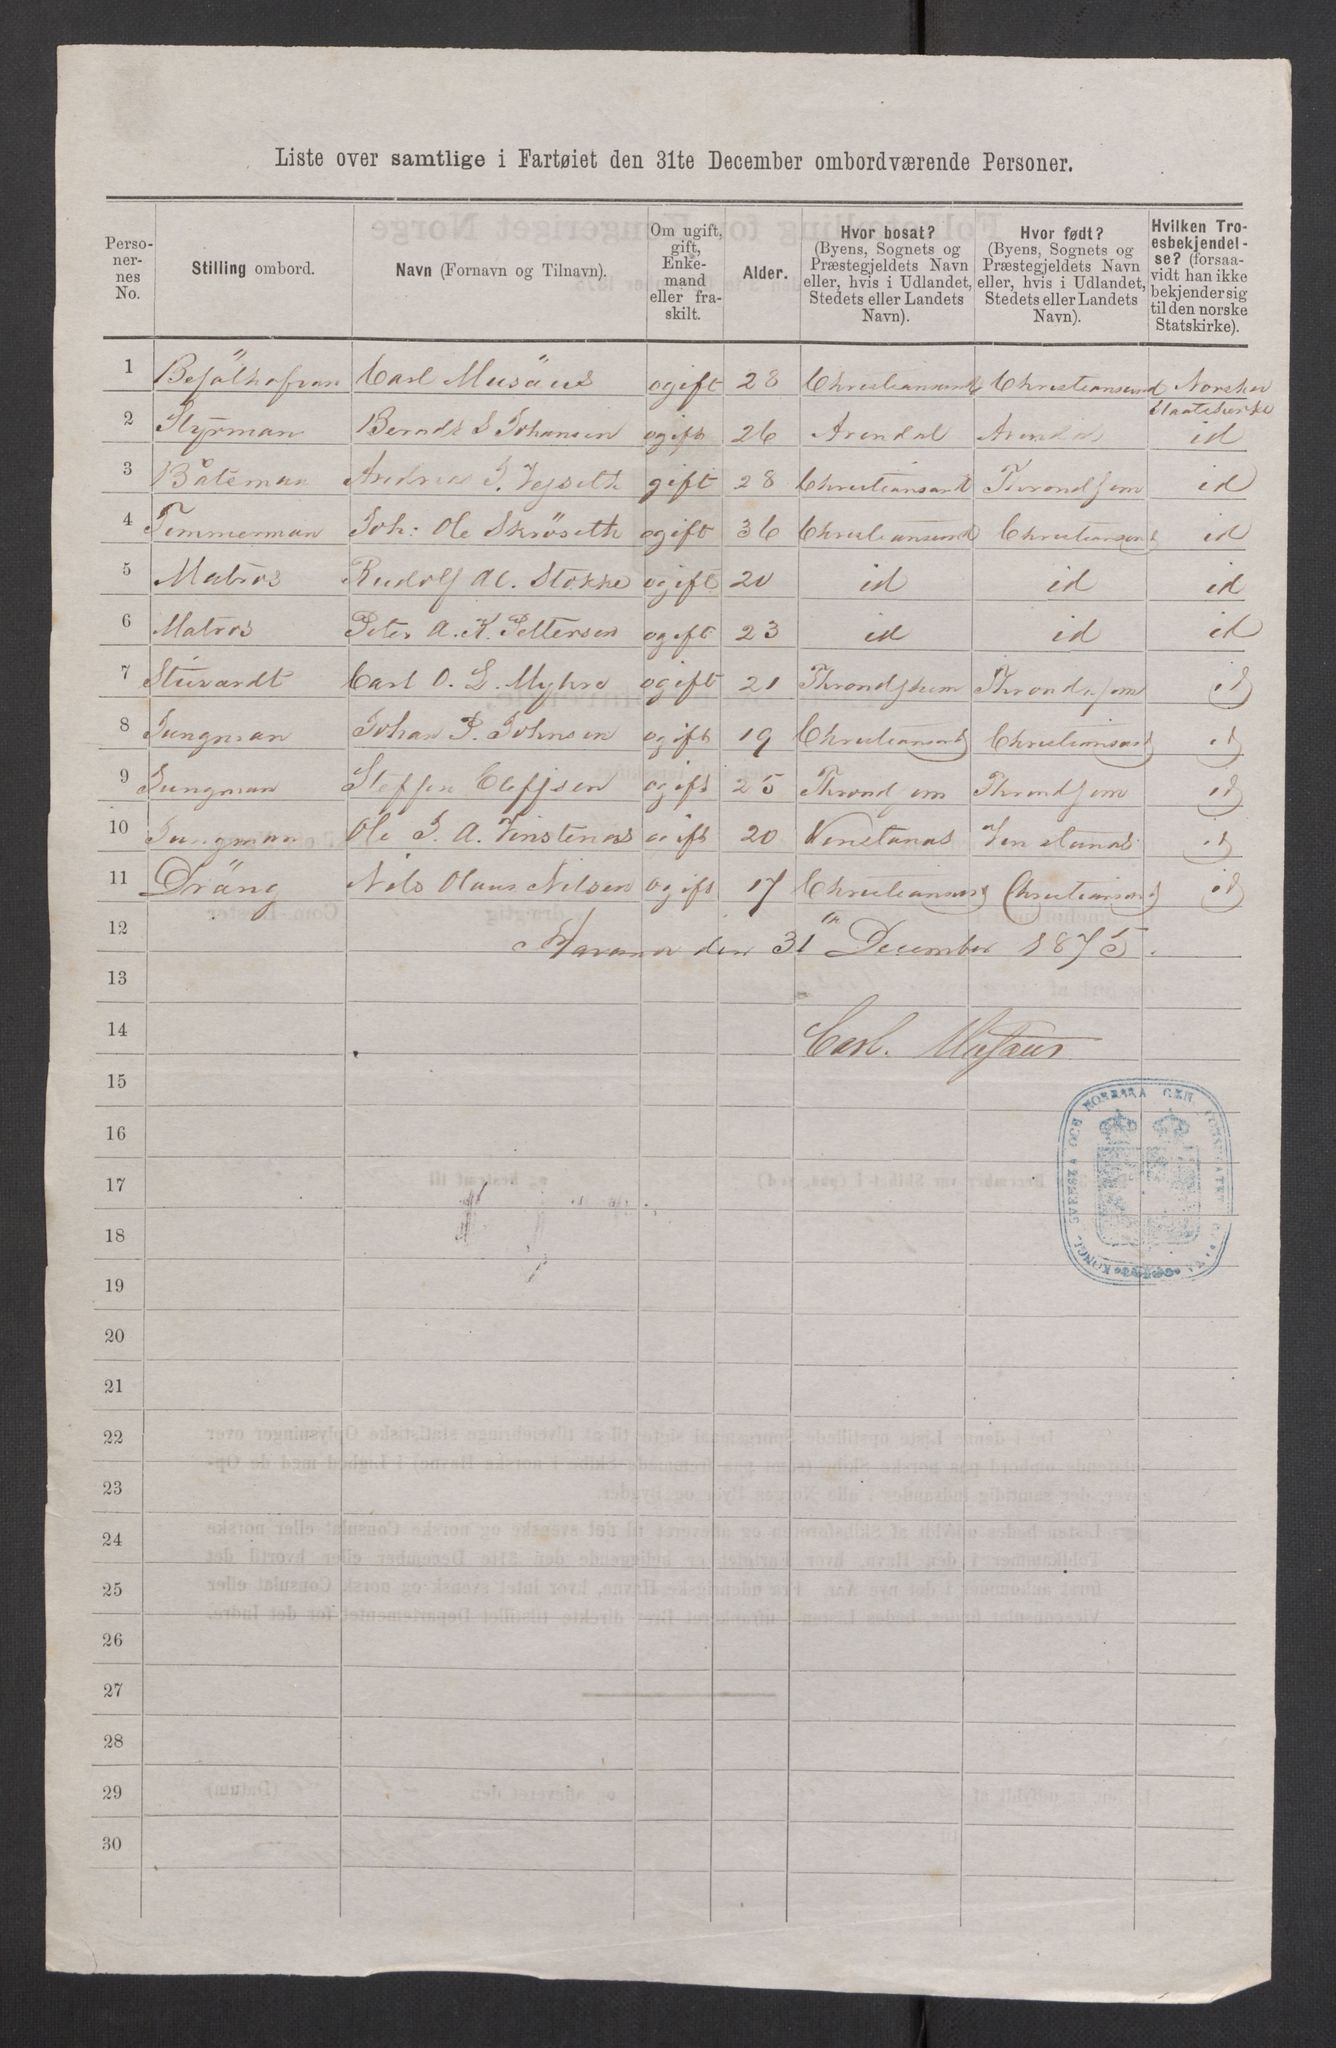 Liste over samtlige i Fartøiet den 31te December ombordværende Personer.
Perso-
ner-
nes
No.
Stilling ombord.
Navn (Fornavn og Tilnavn).
Om ugift,
gift,
Enke-
mand
eller fra-
skilt.
Alder.
Hvor bosat?
(Byens, Sognets og
Præstegjeldets Navn
eller, hvis i Udlandet,
Stedets eller Landets
Navn).
Hvor født?
(Byens, Sognets og
Præstegjeldets Navn
eller, hvis i Udlandet,
Stedets eller Landets
Navn).
Hvilken Tro-
esbekjendel-
se? (forsaa-
vidt han ikke
bekjender sig
til den norske
Statskirke).
1 Befälhafvan Carl Musäus ogift 28 Christiansund Christiansund Norsker
Staatskirke
2 Styrman Berndt S Johansen ogift 26 Arendal Arendal id
3 Båtsman Andreas J. gift 28 Christiansund Throndjem id
4 Timmerman Joh: Ole Skröseth ogift 36 Christiansund Christiansund id
5 Matros Rudolf Al. Stokke ogift 20 id id id
6 Matros Peter A. K. Pettersen ogift 23 id id id
7 Stuvardt Carl O. L. Myhre ogift 21 Throndjhem Throndjem id
8 Jungman Johan P. Johnsen ogift 19 Christiansund Christiansund id
9 Jungman Steffen ogift 25 Throndjem Throndjem id
10 Jungman Ole J. A. Vinstenas ogift 20 Venstanas Venstanas id
11 Dräng Nils Olaus Nilsen ogift 17 Christiansund Christiansund id
12 den 31 December 1875.
13
14 Carl. Musäus
15
16
17
18
19
20
21
22
23
24
25
26
27
28
29
30
KONGL. SVENSKA OCH NORRSKA GEN. CONSULATET